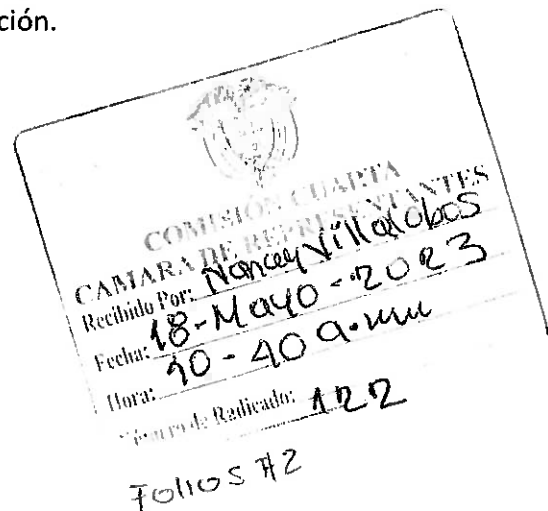 ción.
COMISIÓN CUARTA
CAMARA DE REPRESENTANTES
Recibido Por: Nancy Villalobos
Fecha: 18-Mayo-2023
Hora: 10-40 a.m
Número de Radicado: 122
Folios #2